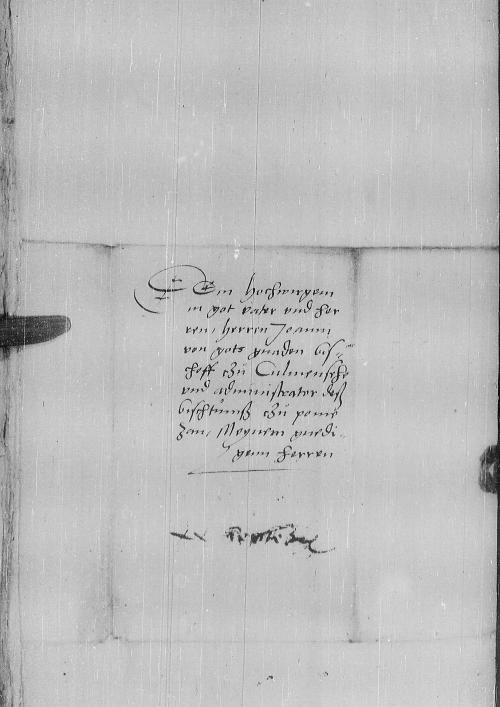 Dem hochwirgenn
in got vater und her
ren, herren Joanni
von gots gnaden bis-
choff czu Culmensche
und administrator deß
bischtumß czu pome
zan, Meynem gnedi-
genn herren